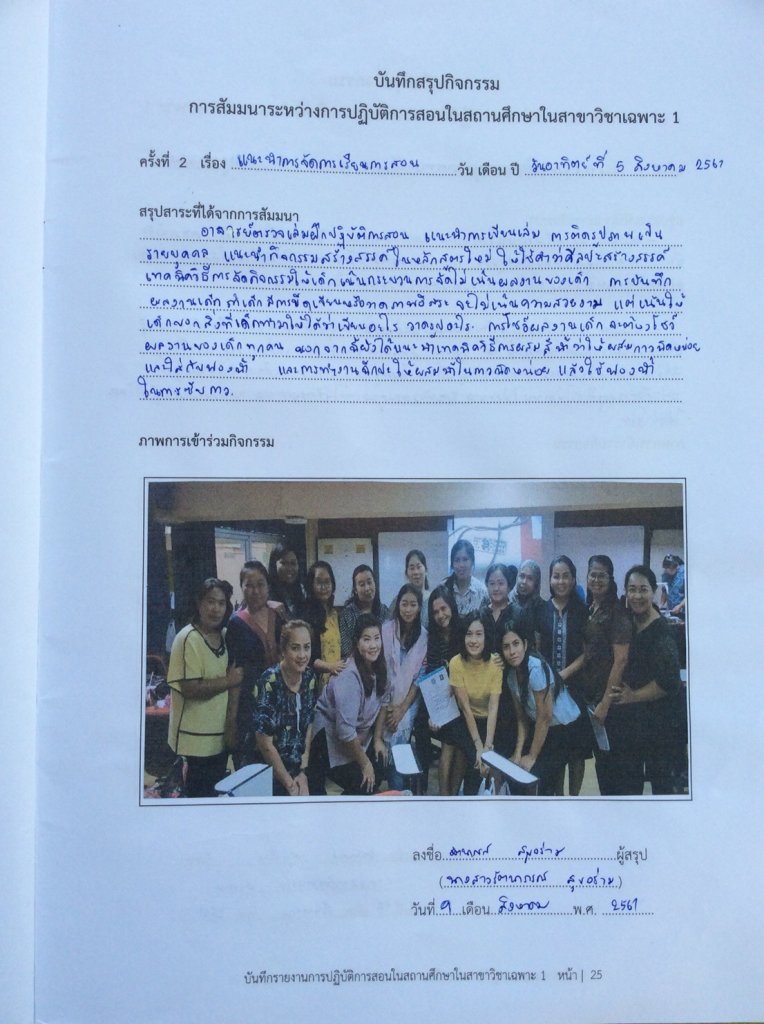 บันทึกสรุปกิจกรรม
การสัมมนาระหว่างการปฏิบัติการสอนในสถานศึกษาในสาขาวิชาเฉพาะ 1
ครั้งที่ 2 เรื่อง แนะนำการจัดการเรียนการสอน วัน เดือน ปี วันอาทิตย์ ที่ 5 สิงหาคม 2561
สรุปสาระที่ได้จากการสัมมนา
อาจารย์ตรวจเล่มฝึกปฏิบัติการสอน แนะนำการเขียนเล่ม การติดรูปภาพเป็น
รายบุคคล แนะนำกิจกรรมสร้างสรรค์ในหลักสูตรใหม่ ให้ใช้คำว่าศิลปะสร้างสรรค์
เทคนิควิธีการจัดกิจกรรมให้เด็กเน้นกระบวนการจัดไม่เน้นผลงานของเด็ก การบันทึก
ผลงานเด็ก ถ้าเด็กมีการขีดเขียนหรือวาดภาพอิสระ จะไม่เน้นความสวยงาม แต่เน้นให้
เด็กบอกสิ่งที่เด็กทำมาให้ได้ว่าเขียนอะไร วาดรูปอะไร การโชว์ผลงานเด็ก จะต้องโชว์
ผลงานของเด็กทุกคน นอกจากนี้ยังได้แนะนำเทคนิควิธีการผสมสีน้ำว่าให้ผสมกาวนิดหน่อย
และใส่กับฟองน้ำ และการทำงานฉีกปะให้ผสมน้ำในกาวนิดหน่อย แล้วใช้ฟองน้ำ
ในการซับกาว.
ภาพการเข้าร่วมกิจกรรม
ลงชื่อ ผู้สรุป
(นางสาวรัตนาภรณ์ สุขอร่าม)
วันที่ 9 เดือน สิงหาคม พ.ศ. 2561
บันทึกรายงานการปฏิบัติการสอนในสถานศึกษาในสาขาวิชาเฉพาะ 1 หน้า | 25